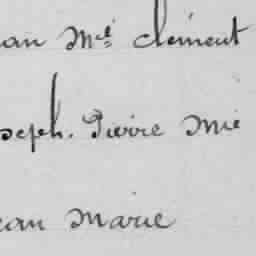 an Mel clément
seph. Pierre Mie
ean Marie